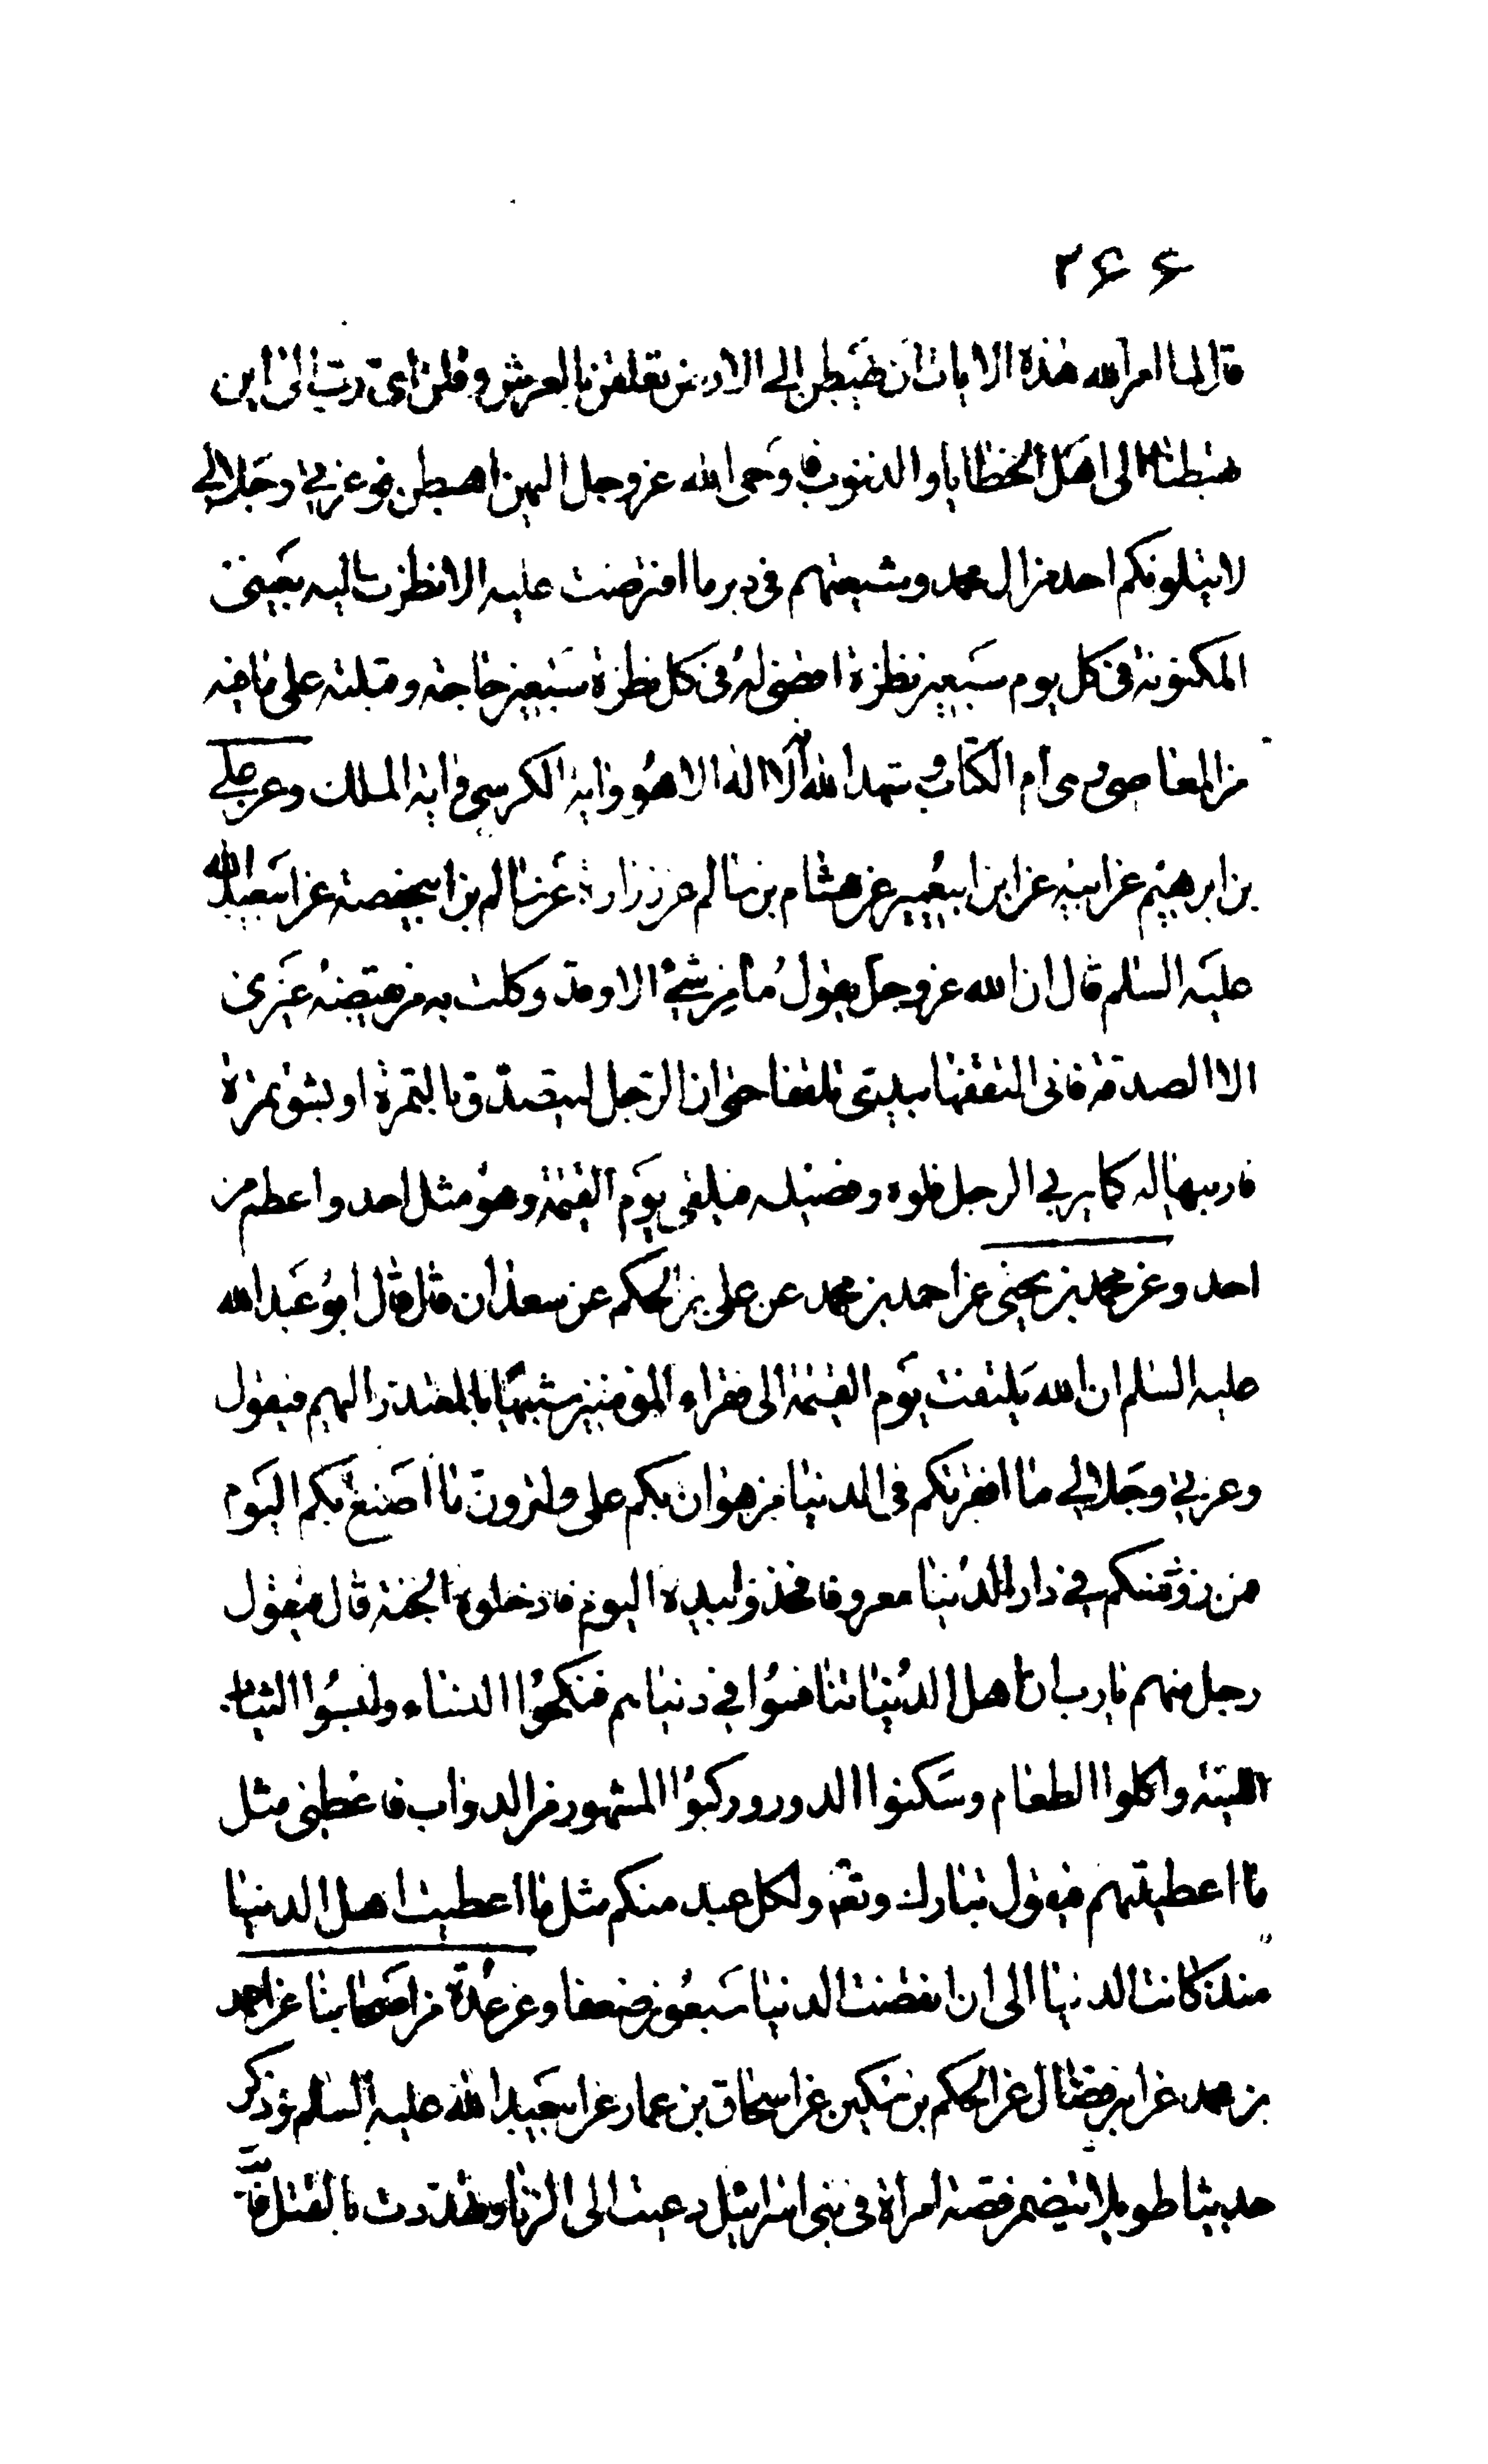 ۲۶۶
قال لما امر الله هذه الايات ان يهبطن الى الارض تعلقن بالعرش وقلن اى رب الى اين
تهبطنا الى اهل الخطايا والذنوب فاوحى الله عز وجل اليهن اهبطن فوعزتي وجلالي
لا يتلوكم احد من ال محمد وشيعتهم في دبر ما افترضت عليه الا نظرت اليه بعيني
المكنونة في كل يوم سبعين نظرة اقضى له في كل نظرة سبعين حاجة وقبلته على ما فيه
من المعاصي وهى ام الكتاب وشهد الله انه لا اله الا هو واية الكرسي واية الملك وعن علي
بن ابرهيم عن ابيه عن ابن ابي عمير عن هشام بن سالم عن زرارة عن سالم بن ابي حفصة عن ابي عبد الله
عليه السلم قال ان الله عز وجل يقول ما من شئ الا وقد وكلت به من يقبضه غيرى
الا الصدقة فانى اتلقفها بيدى تلقفا حتى ان الرجل ليتصدق بالتمرة او بشق تمرة
فاربيها له كما يربي الرجل فلوه وفصيله فيلقى يوم القيمة وهو مثل احد واعظم من
احد وعن محمد بن يحيى عن احمد بن محمد عن على بن الحكم عن سعدان قال قال ابو عبد الله
عليه السلم ان الله يلتفت يوم القيمة الى فقراء المؤمنين شبيها بالمعتذر اليهم فيقول
وعزتي وجلالي ما افقرتكم في الدنيا من هوان بكم على ولترون ما اصنع بكم اليوم
فمن زود منكم في دار الدنيا معروفا فخذوا بيده اليوم فادخلوه الجنة قال فيقول
رجل منهم يا رب ان اهل الدنيا تنافسوا في دنياهم فنكحوا النساء ولبسوا الثياب
اللينة واكلوا الطعام وسكنوا الدور وركبوا المشهور من الدواب فاعطني مثل
ما اعطيتهم فيقول تبارك وتع ولكل عبد منكم مثل ما اعطيت اهل الدنيا
منذ كانت الدنيا الى ان انقضت الدنيا سبعون ضعفا وعن عدة من اصحابنا عن احمد
بن محمد عن ابن فضال عن الحكم بن مسكين عن اسحاق بن عمار عن ابي عبد الله عليه السلم وذكر
حديثا طويلا يتضمن قصة امراة في بنى اسرائيل دعيت الى الزنا وهددت بالقتل